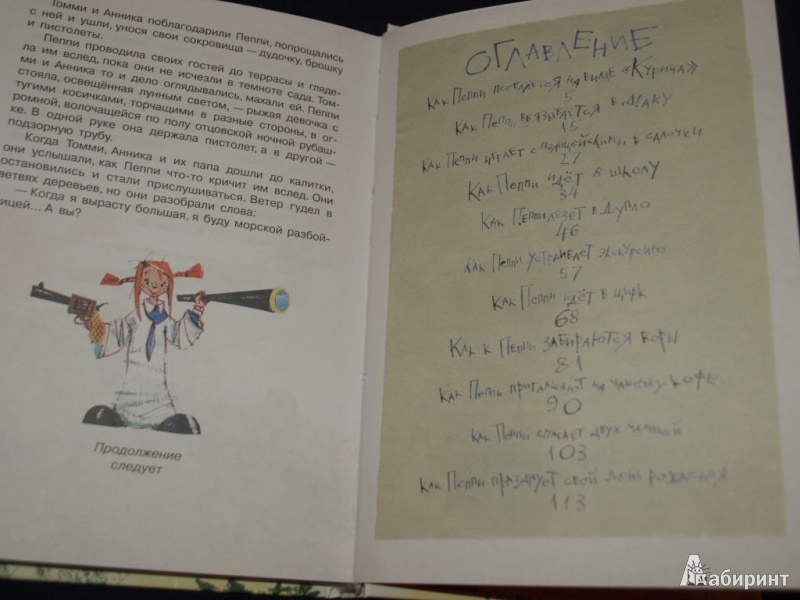 Томми и Анника поблагодарили Пеппи, попрощались
с ней и ушли, унося свои сокровища — дудочку, брошку
и пистолеты.
Пеппи проводила своих гостей до террасы и гляде-
ла им вслед, пока они не исчезли в темноте сада. Том-
ми и Анника то и дело оглядывались, махали ей. Пеппи
стояла, освещённая лунным светом, — рыжая девочка с
тугими косичками, торчащими в разные стороны, в ог-
ромной, волочащейся по полу отцовской ночной рубаш-
ке. В одной руке она держала пистолет, а в другой —
подзорную трубу.
Когда Томми, Анника и их папа дошли до калитки,
они услышали, как Пеппи что-то кричит им вслед. Они
остановились и стали прислушиваться. Ветер гудел в
ветвях деревьев, но они разобрали слова:
— Когда я вырасту большая, я буду морской разбой-
ницей... А вы?
Продолжение
следует
ОГЛАВЛЕНИЕ
Как Пеппи поселяется на вилле «Курица»
5
Как Пеппи ввязывается в драку
15
Как Пеппи играет с полицейскими в салочки
27
Как Пеппи идёт в школу
34
Как Пеппи лезет в дупло
46
Как Пеппи устраивает экскурсию
57
Как Пеппи идёт в цирк
68
Как к Пеппи забираются воры
81
Как Пеппи приглашают на чашечку кофе
90
Как Пеппи спасает двух малышей
103
Как Пеппи празднует свой день рождения
113
Лабиринт